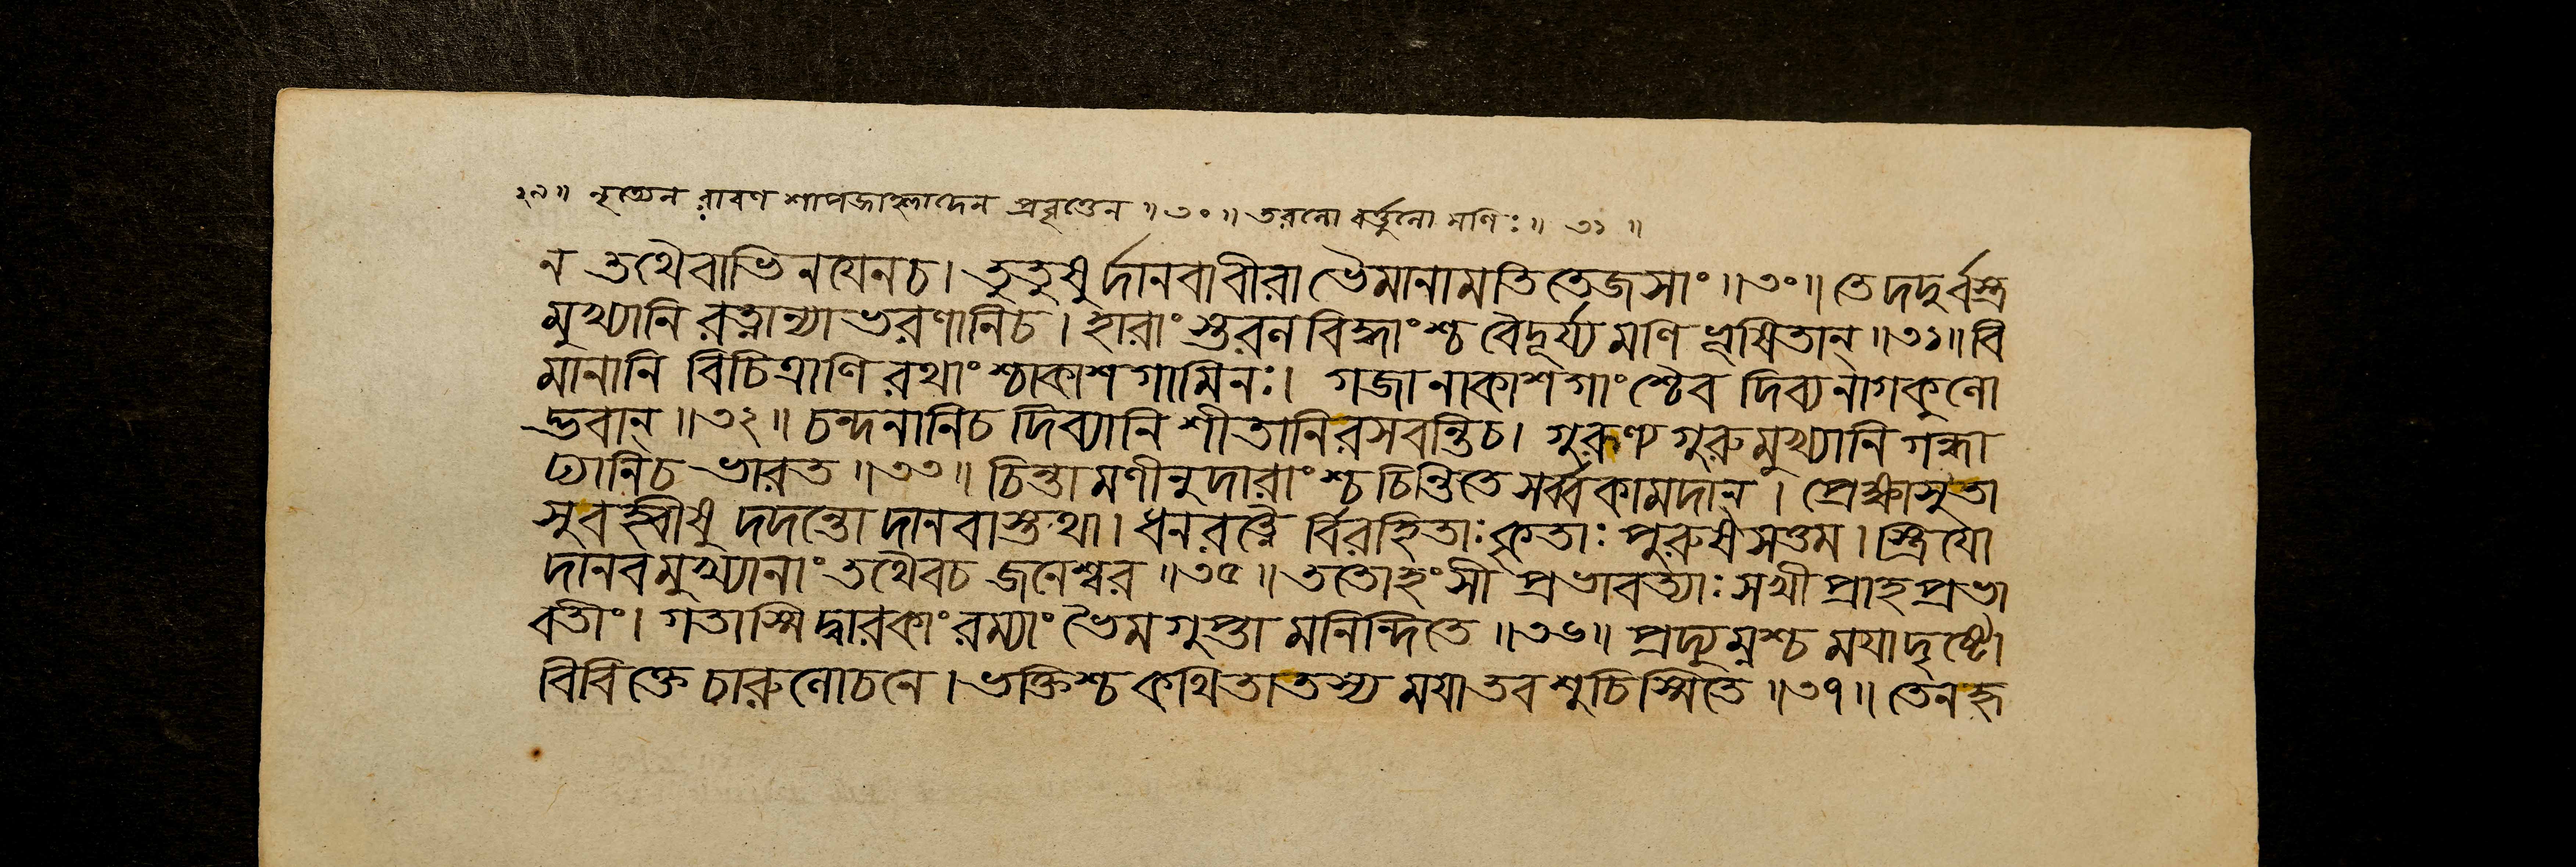 ২৯॥ নৃত্যেন রাবণ শাপজাহ্লাদেন প্রবৃত্তেন ॥ ৩০ ॥ তরলো বর্তুলো মণিঃ ॥ ৩১ ॥
ন তথৈবাভিনযেনচ। তুতুষুর্দানবাবীরা ভৈমানামতিতেজসাং ॥৩০॥ তে দদুর্বস্ত্র
মুখ্যানি রত্নান্যাভরণানিচ। হারাংস্তরলবিদ্ধাংশ্চ বৈদূর্য্য মণি ভূষিতান্ ॥৩১॥ বি
মানানি বিচিত্রাণি রথাংশ্চাকাশগামিনঃ। গজানাকাশগাংশ্চৈব দিব্যনাগকুলো
দ্ভবান্ ॥৩২॥ চন্দনানিচ দিব্যানি শীতানিরসবন্তিচ। গুরূণ্য গুরুমুখ্যানি গন্ধা
ঢ্যানিচ ভারত ॥৩৩॥ চিন্তামণীনুদারাংশ্চ চিন্তিতে সর্ব্বকামদান্। প্রেক্ষাসুতা
সুবহ্বীষু দদন্তো দানবাস্তথা। ধনরত্নৈ র্বিরহিতাঃ কৃতাঃ পুরুষসত্তম। স্ত্রিযো
দানবমুখ্যানাং তথৈবচ জনেশ্বর ॥৩৫॥ ততোহংসী প্রভাবত্যাঃ সখী প্রাহ প্রভা
বতীং। গতাস্মি দ্বারকাং রম্যাং ভৈমগুপ্তা মনিন্দিতে ॥৩৬॥ প্রদ্যুম্নশ্চ মযাদৃষ্টো
বিবিক্তে চারুলোচনে। ভক্তিশ্চ কথিতা তস্য মযা তব শুচিস্মিতে ॥৩৭॥ তেনহৃ